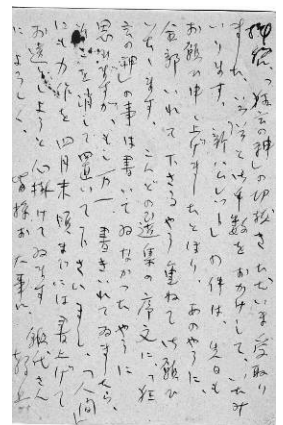 拝復、「狂言の神」の切抜きただいま受取り
ました。いろいろとお手数をおかけして、いたみ
いります。「新ハムレット」の件は、先日も
お願ひ申し上げましたとほり、あのやうに、
全部いれて下さるやう重ねてお願ひ
いたします。こんどの選集の序文に「狂
言の神」の事は書いてゐなかつたやうに
思ひますが、もし万一、書きいれてゐましたら、
を消して置いて下さいまし。「人間」
にも力作を四月末頃までには書上げて
お送りしようと心掛けてゐます。さん
によろしく。皆様お大事に。